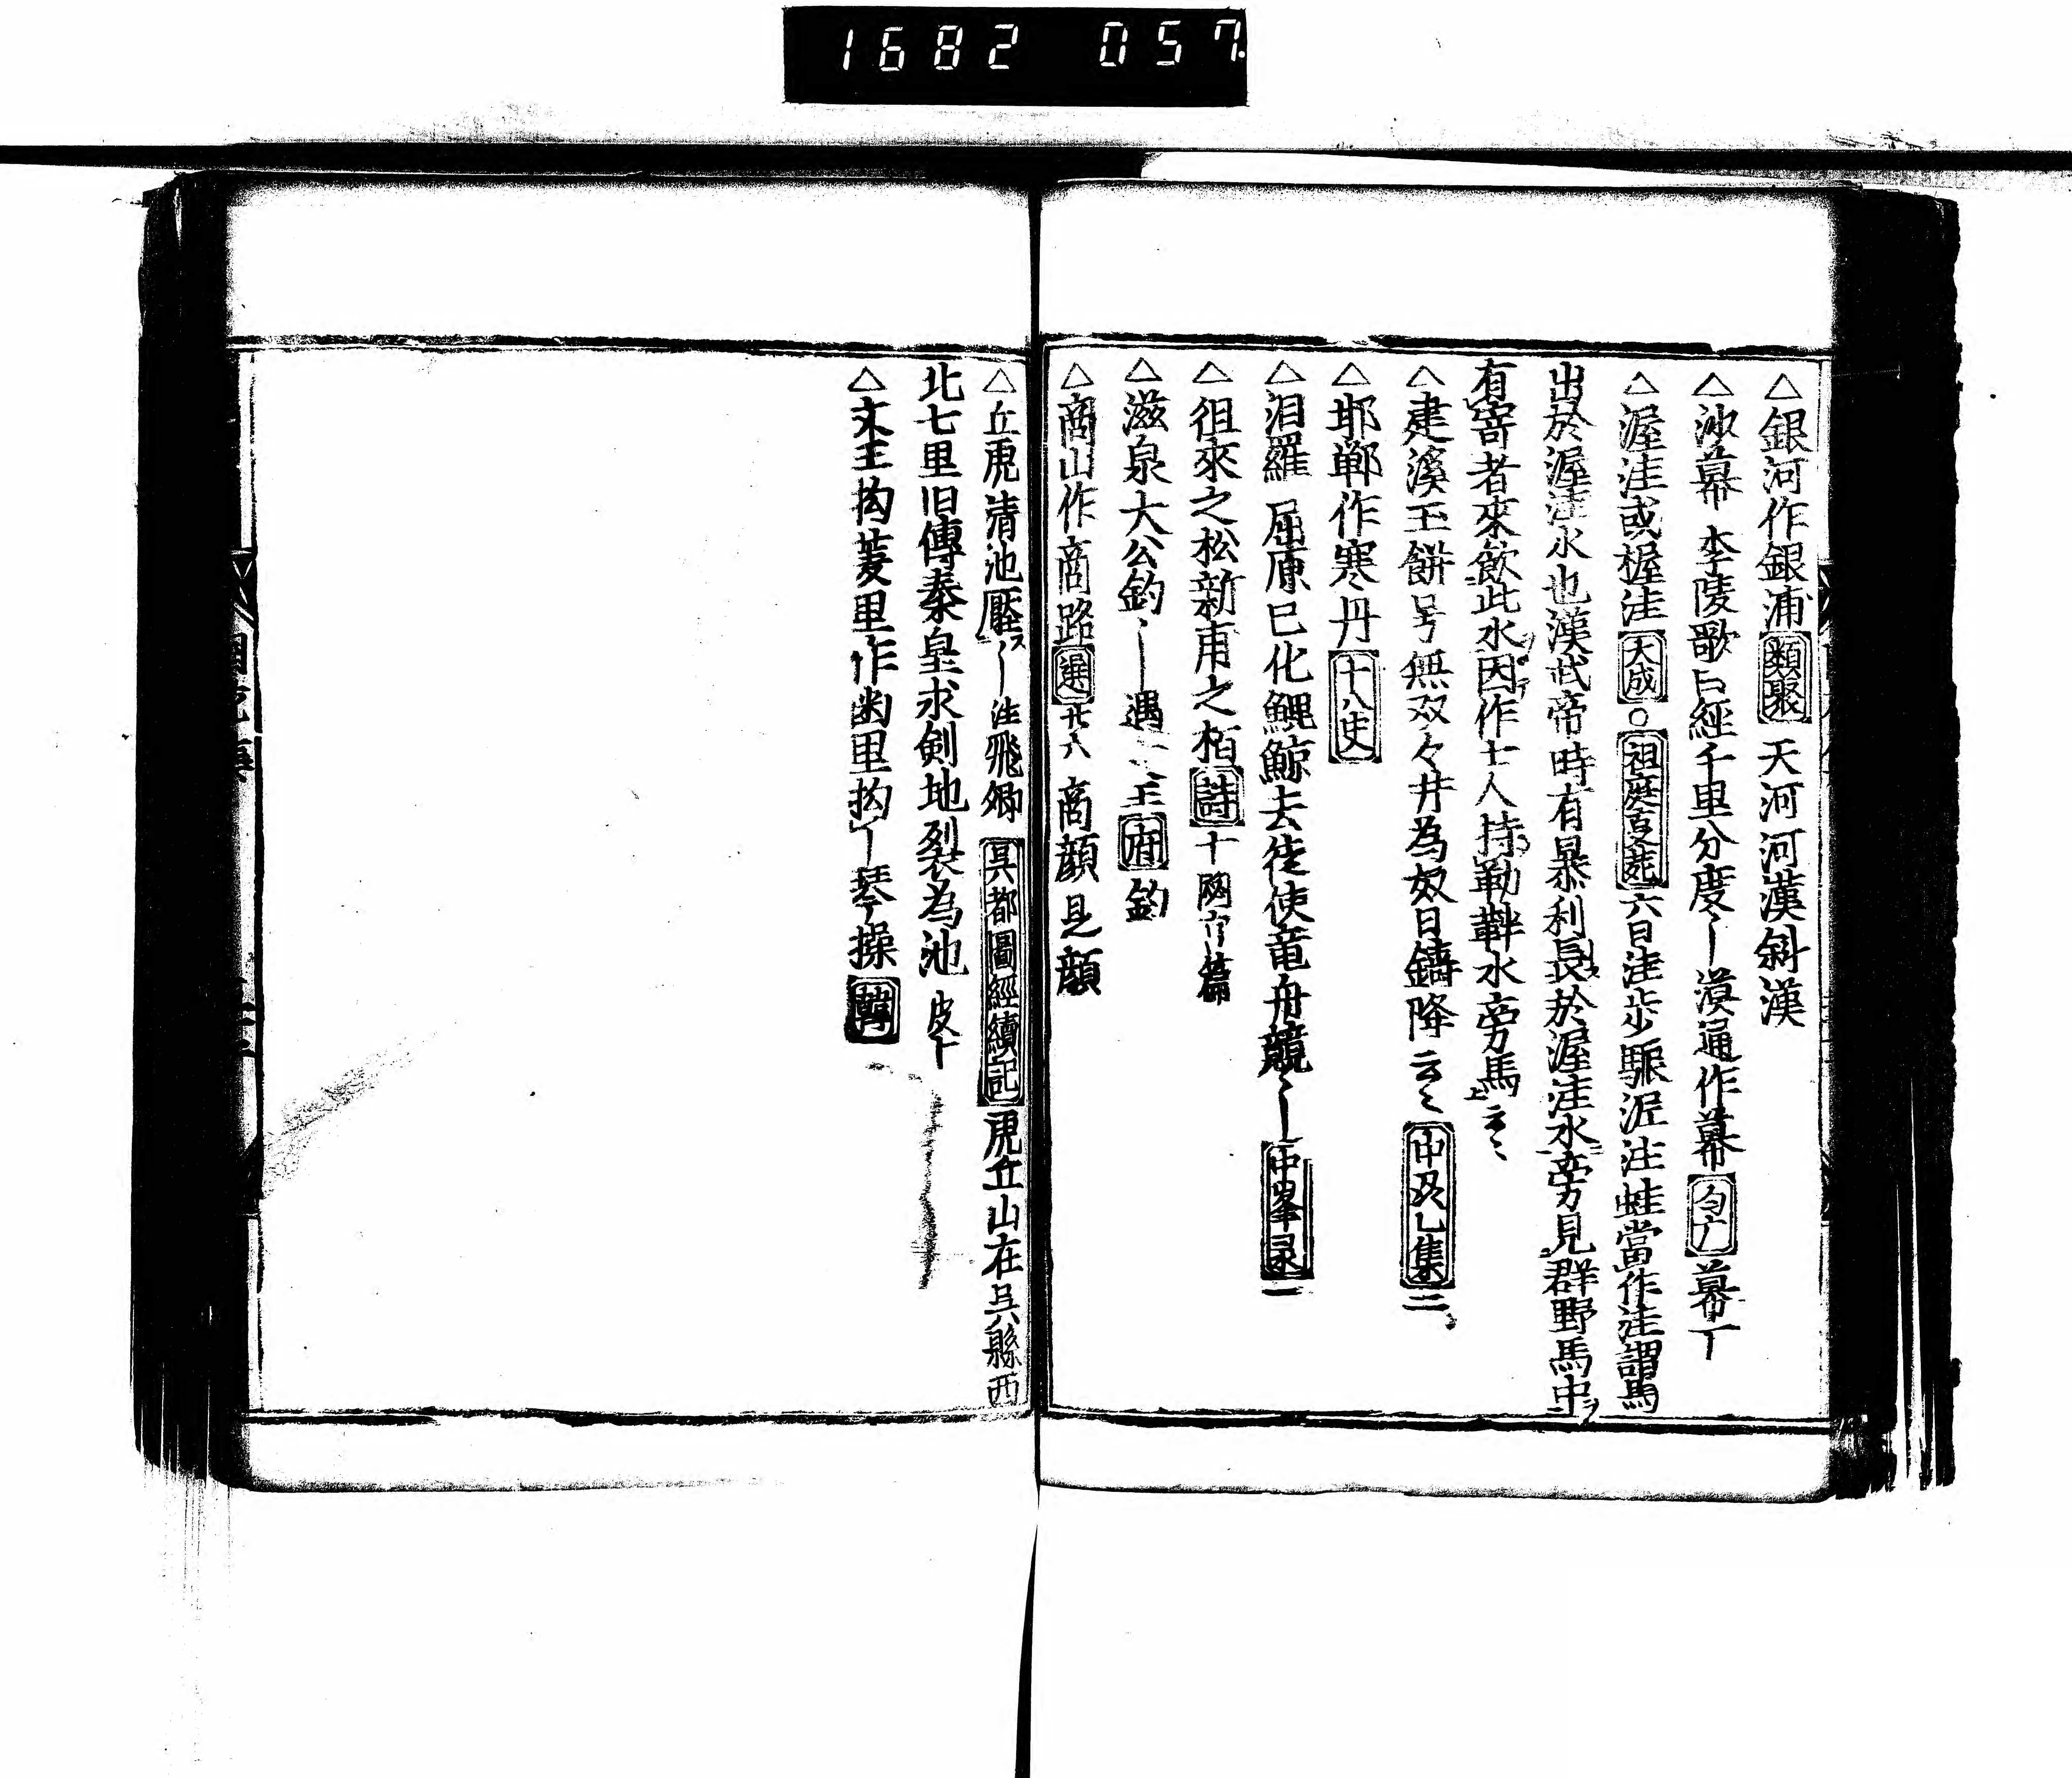 1682 057
△銀河作銀浦 類聚 天河河漢斜漢
△沙幕 李陵歌曰經千里分度〡漠通作幕 勻广 幕丅
△渥洼或握洼 天成 ○祖庭事苑 六曰洼步驟渥注蛙當作洼謂馬
出於渥洼水也漢武帝時有暴利長於渥洼水旁見群野馬中
有寄者來飲此水因作士人持勒靽水旁馬云々
△建溪玉餅号無双々井為奴日鑄降云々 中及乙集 二
△耶鄲作寒丹 十八史
△汨羅 屈原已化鯤鯨去徒使竜舟競〡 中峯录 一
△徂來之松新甫之栢 詩 十 閟宮篇
△滋泉大公釣〡遇 王 府 釣
△商山作商路 選 廿八 商顔見顔
△丘虎清池壓〡注飛卿 吳都圖經續記 虎丘山在吳縣西
北七里旧傳秦皇求剣地裂為池 皮下
△文王拘羑里作幽里拘〡琴操 韓